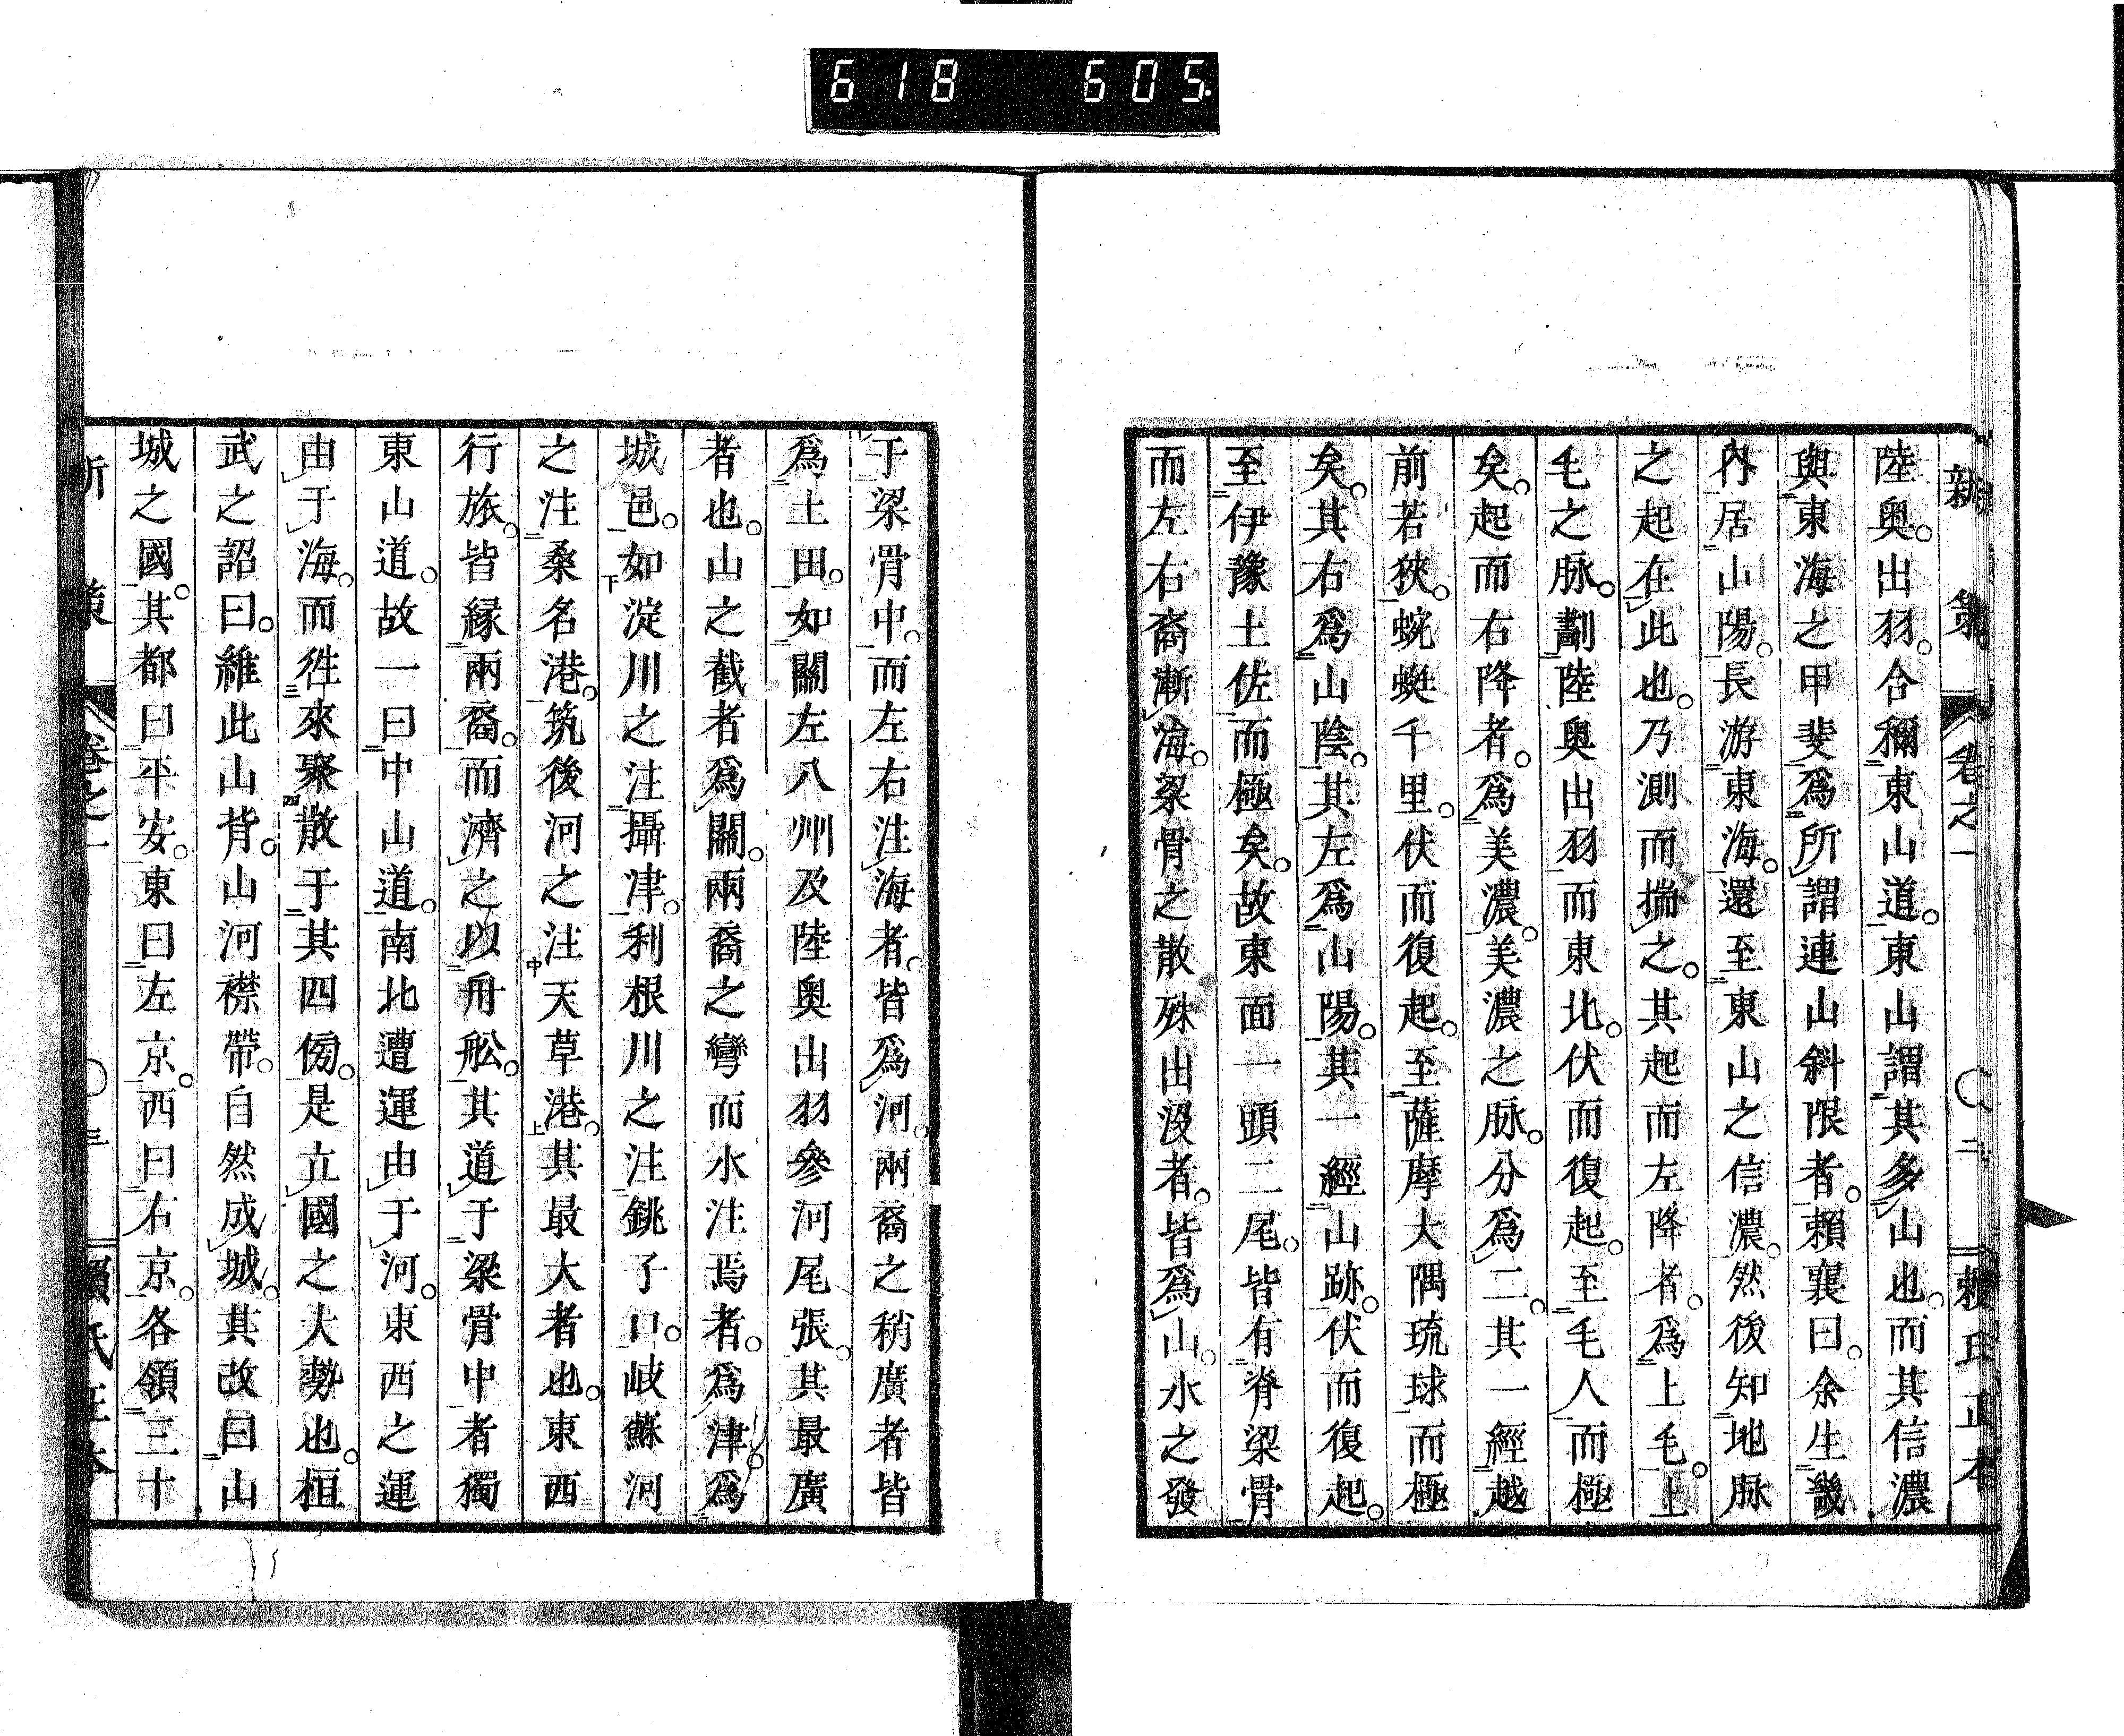 618 605
新策 卷之一 ○二 賴氏正本
陸奧。出羽。合稱東山道。東山謂其多山也。而其信濃
與東海之甲斐爲所謂連山斜限者。賴襄曰。余生畿
內居山陽。長游東海。還至東山之信濃。然後知地脈
之起在此也。乃測而揣之。其起而左降者。爲上毛。上
毛之脈。劃陸奧出羽而東北。伏而復起。至毛人而極
矣。起而右降者。爲美濃。美濃之脈。分爲二。其一經越
前若狹。蜿蜒千里。伏而復起。至薩摩大隅琉球而極
矣。其右爲山陰。其左爲山陽。其一經山跡。伏而復起。
至伊豫土佐而極矣。故東面一頭二尾。皆有脊梁骨
而左右裔漸海。梁骨之散殊出沒者。皆爲山。水之發
于梁骨中。而左右注海者。皆爲河。兩裔之稍廣者皆
爲土田。如關左八州及陸奧出羽參河尾張。其最廣
者也。山之截者爲關。兩裔之彎而水注焉者。爲津。爲
城邑。如淀川之注攝津。利根川之注銚子口。岐蘇河
之注桑名港。筑後河之注天草港。其最大者也。東西
行旅。皆緣兩裔。而濟之以舟舩。其道于梁骨中者獨
東山道。故一曰中山道。南北遭運由于河。東西之運
由于海。而徃來聚散于其四傍。是立國之大勢也。桓
武之詔曰。維此山背。山河襟帶。自然成城。其改曰山
城之國。其都曰平安。東曰左京。西曰右京。各領三十
卷之一 ○三